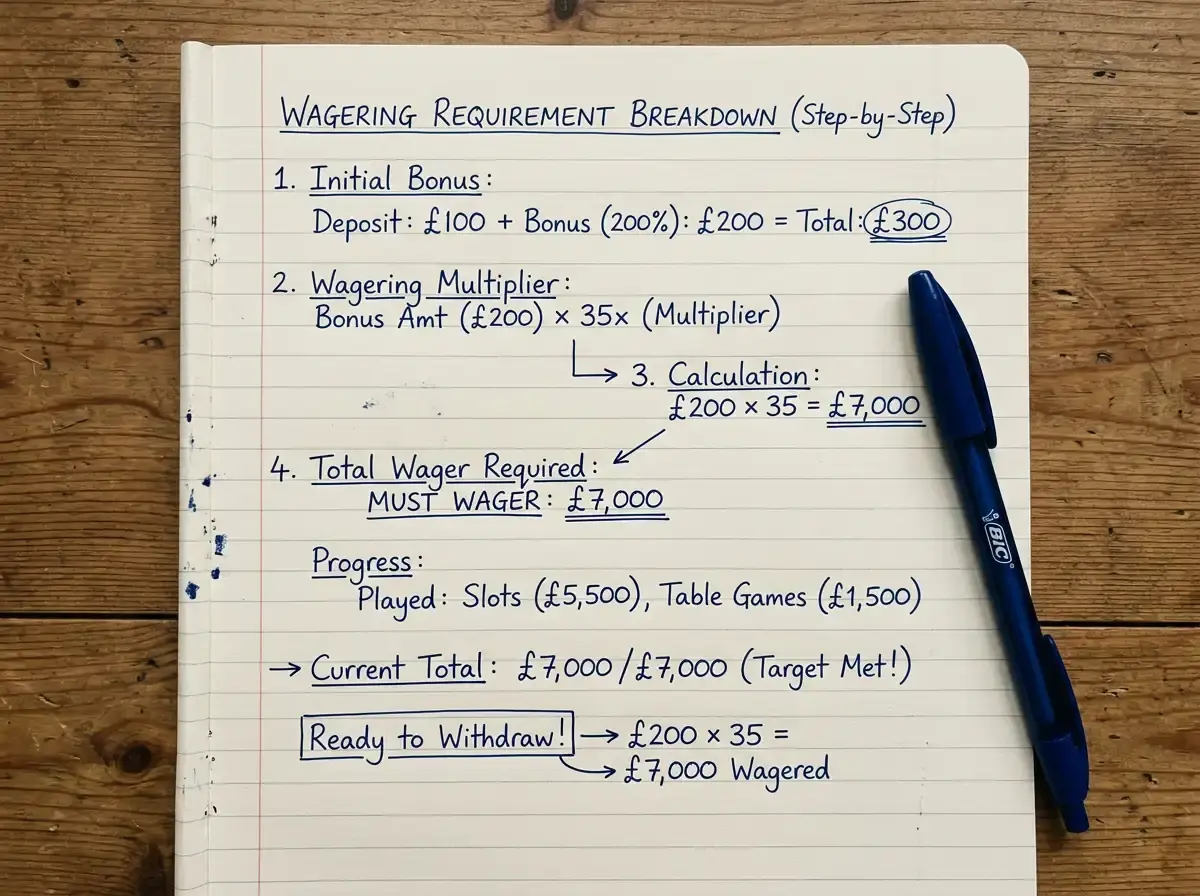 WAGERING REQUIREMENT BREAKDOWN (Step-by-Step)
1. Initial Bonus:
Deposit: £100 + Bonus (200%): £200 = Total: £300
2. Wagering Multiplier:
Bonus Amt (£200) × 35x (Multiplier)
3. Calculation:
£200 × 35 = £7,000
4. Total Wager Required:
MUST WAGER: £7,000
Progress:
Played: Slots (£5,500), Table Games (£1,500)
→ Current Total: £7,000/£7,000 (Target Met!)
Ready to Withdraw! → £200 × 35 =
→ £7,000 Wagered
BIC